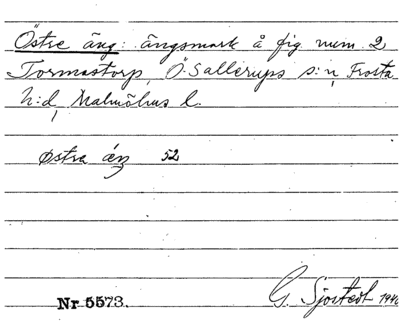 Östre äng: ängsmark å fig num. 2
Tormastorp, Ö. Sallerups s:n, Frosta
h:d, Malmöhus l.
Østra äng 52
Nr 5573.
G. Sjöstedt